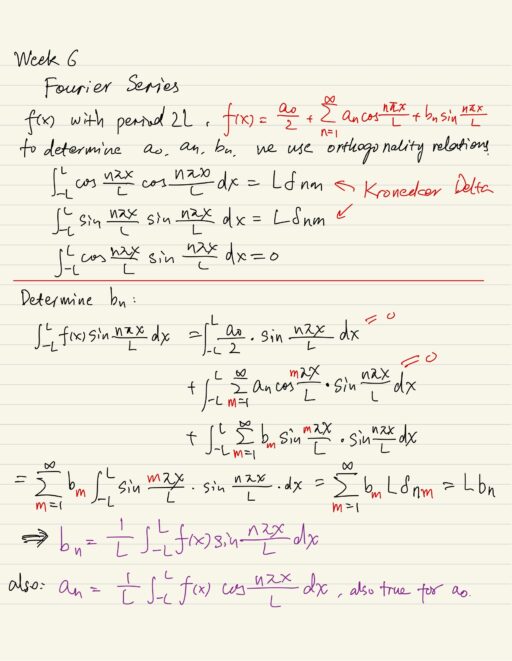 Week 6
Fourier Series
f(x) with period 2L, f(x) = a₀/2 + Σ_{n=1}^{∞} aₙ cos nπx/L + bₙ sin nπx/L
to determine a₀, aₙ, bₙ, we use orthogonality relations
∫_{-L}^{L} cos nπx/L cos nπx/L dx = Lδnm ← Kronecker Delta
∫_{-L}^{L} sin nπx/L sin nπx/L dx = Lδnm ↙
∫_{-L}^{L} cos nπx/L sin nπx/L dx = 0
Determine bₙ:
∫_{-L}^{L} f(x) sin nπx/L dx = ∫_{-L}^{L} a₀/2 · sin nπx/L dx = 0
+ ∫_{-L}^{L} Σ_{m=1}^{∞} aₙ cos mπx/L · sin nπx/L dx = 0
+ ∫_{-L}^{L} Σ_{m=1}^{∞} bₘ sin mπx/L · sin nπx/L dx
= Σ_{m=1}^{∞} bₘ ∫_{-L}^{L} sin mπx/L · sin nπx/L · dx = Σ_{m=1}^{∞} bₘ Lδnm = Lbₙ
⇒ bₙ = 1/L ∫_{-L}^{L} f(x) sin nπx/L dx
also: aₙ = 1/L ∫_{-L}^{L} f(x) cos nπx/L dx, also true for a₀.